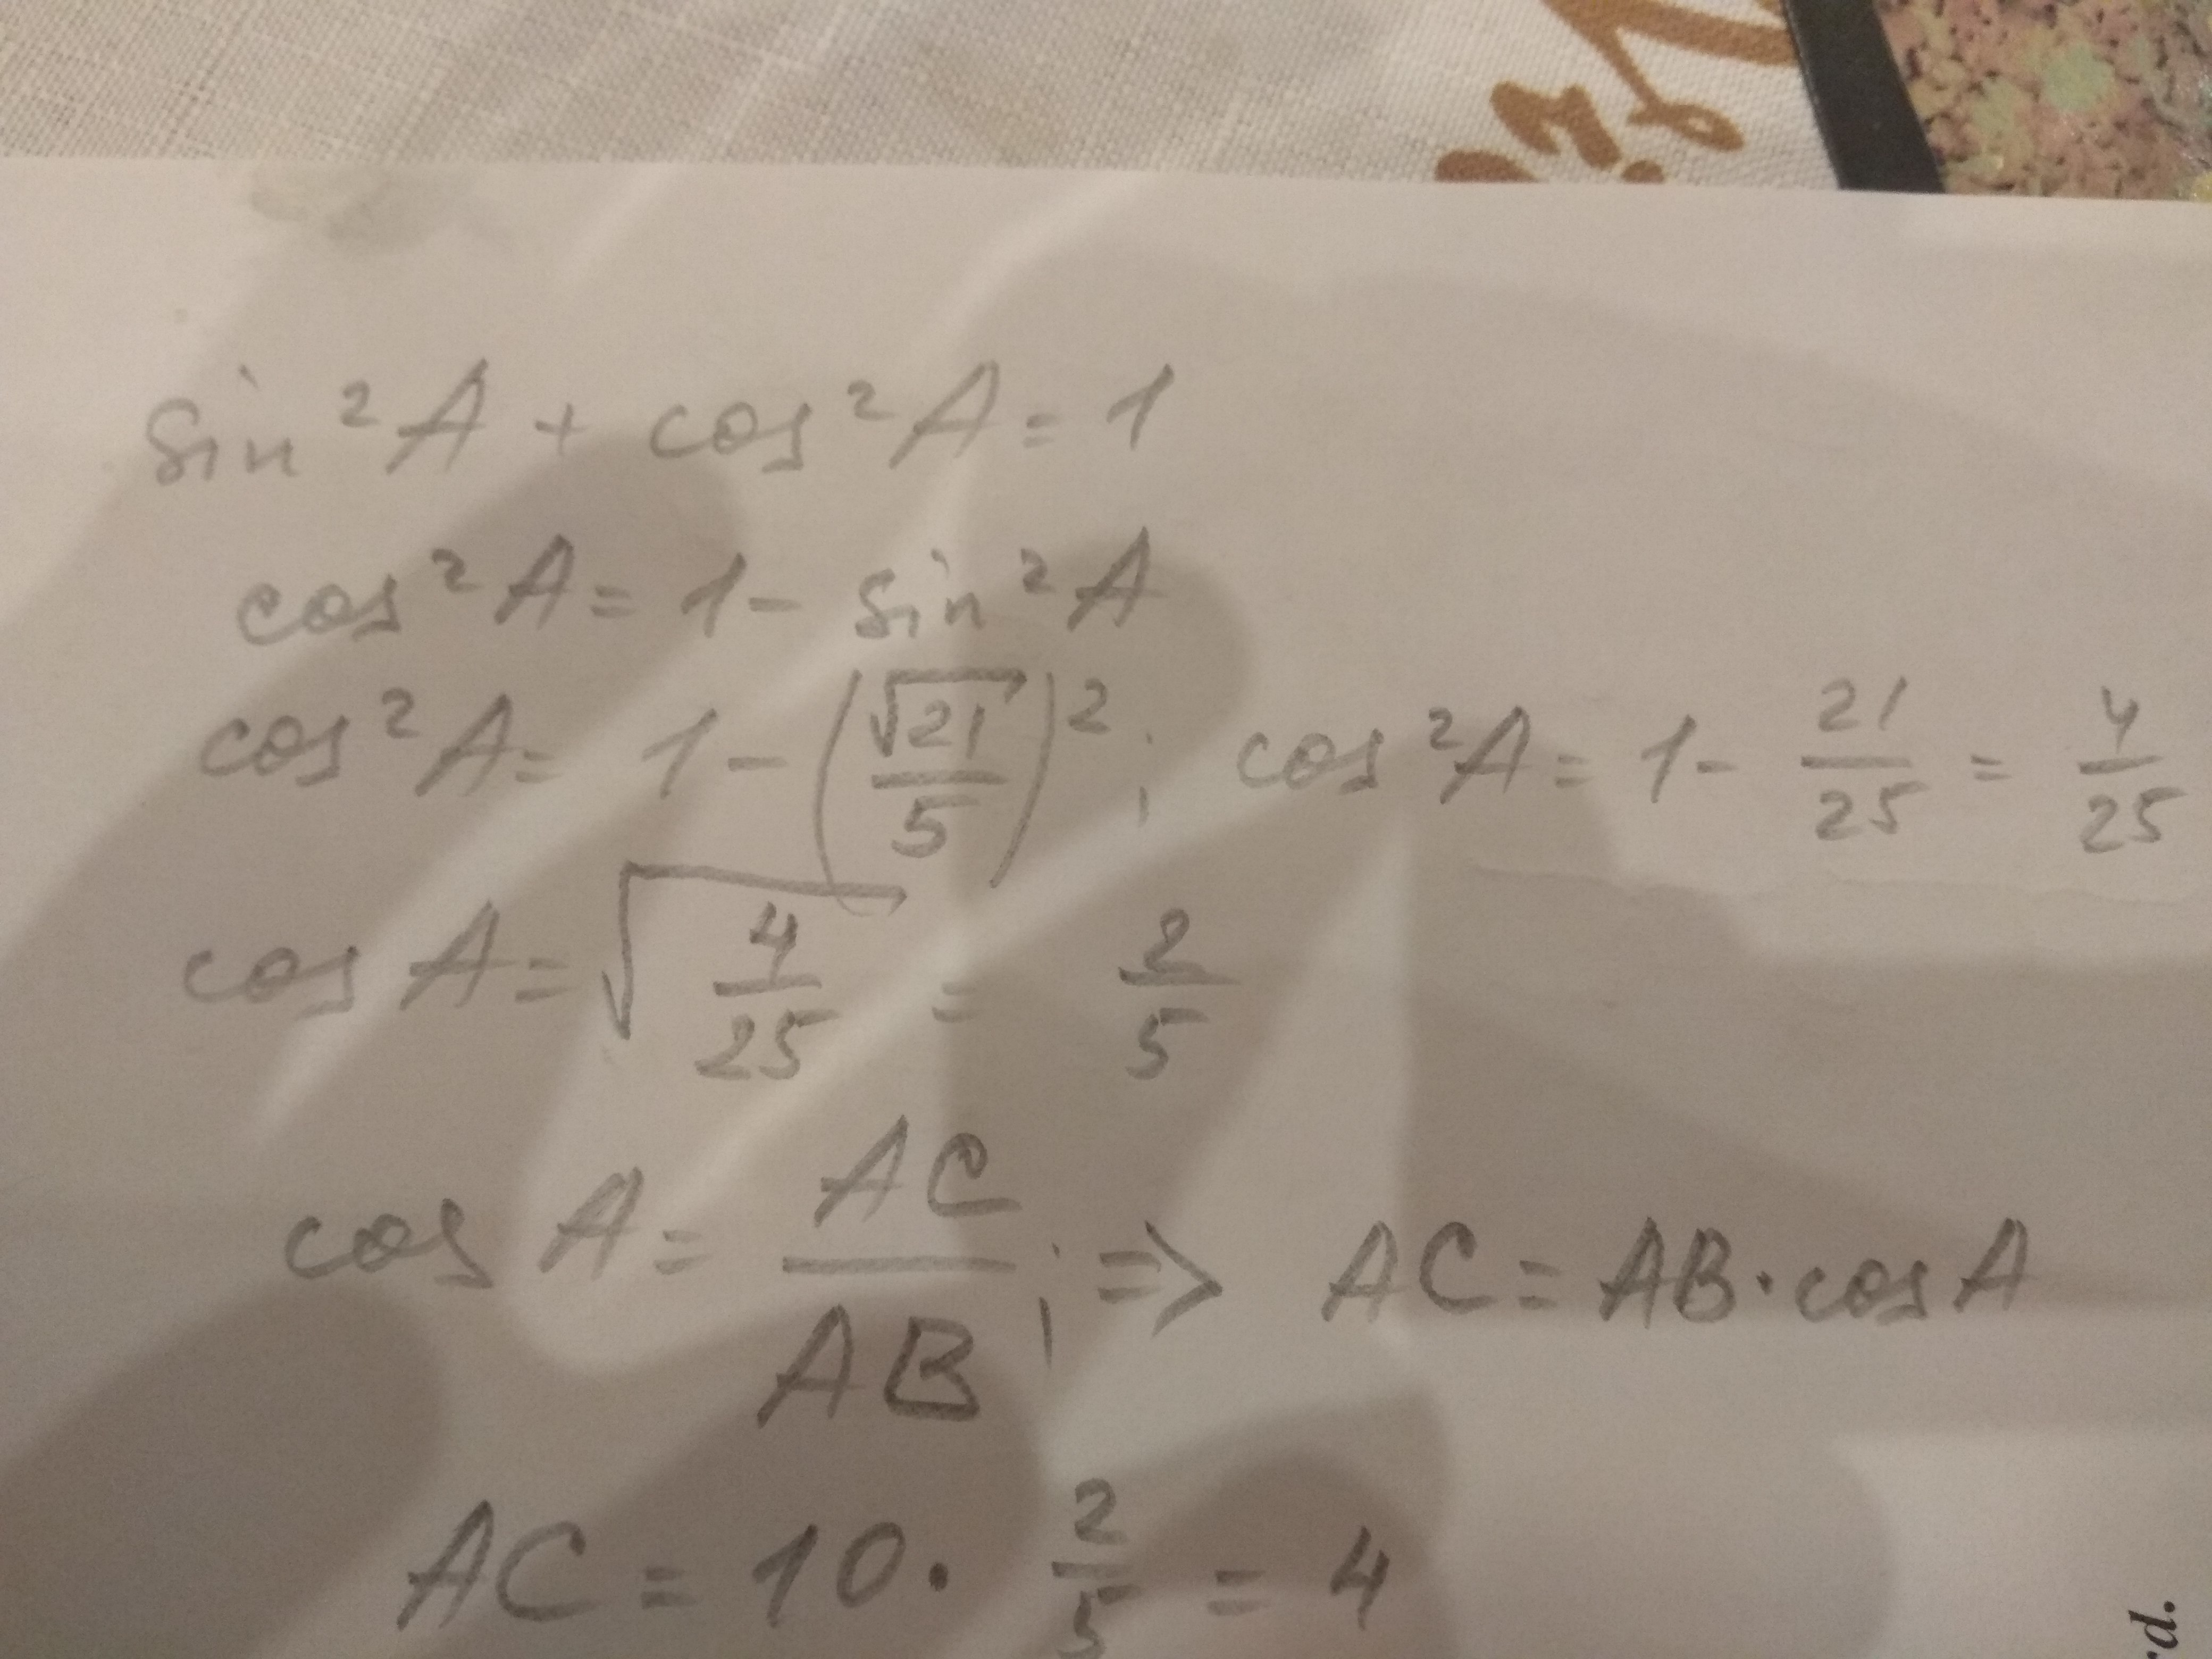 sin²A + cos²A = 1
cos²A = 1 - sin²A
cos²A = 1 - (√21/5)²; cos²A = 1 - 21/25 = 4/25
cos A = √(4/25) = 2/5
cos A = AC/AB; => AC = AB · cos A
AC = 10 · 2/5 = 4